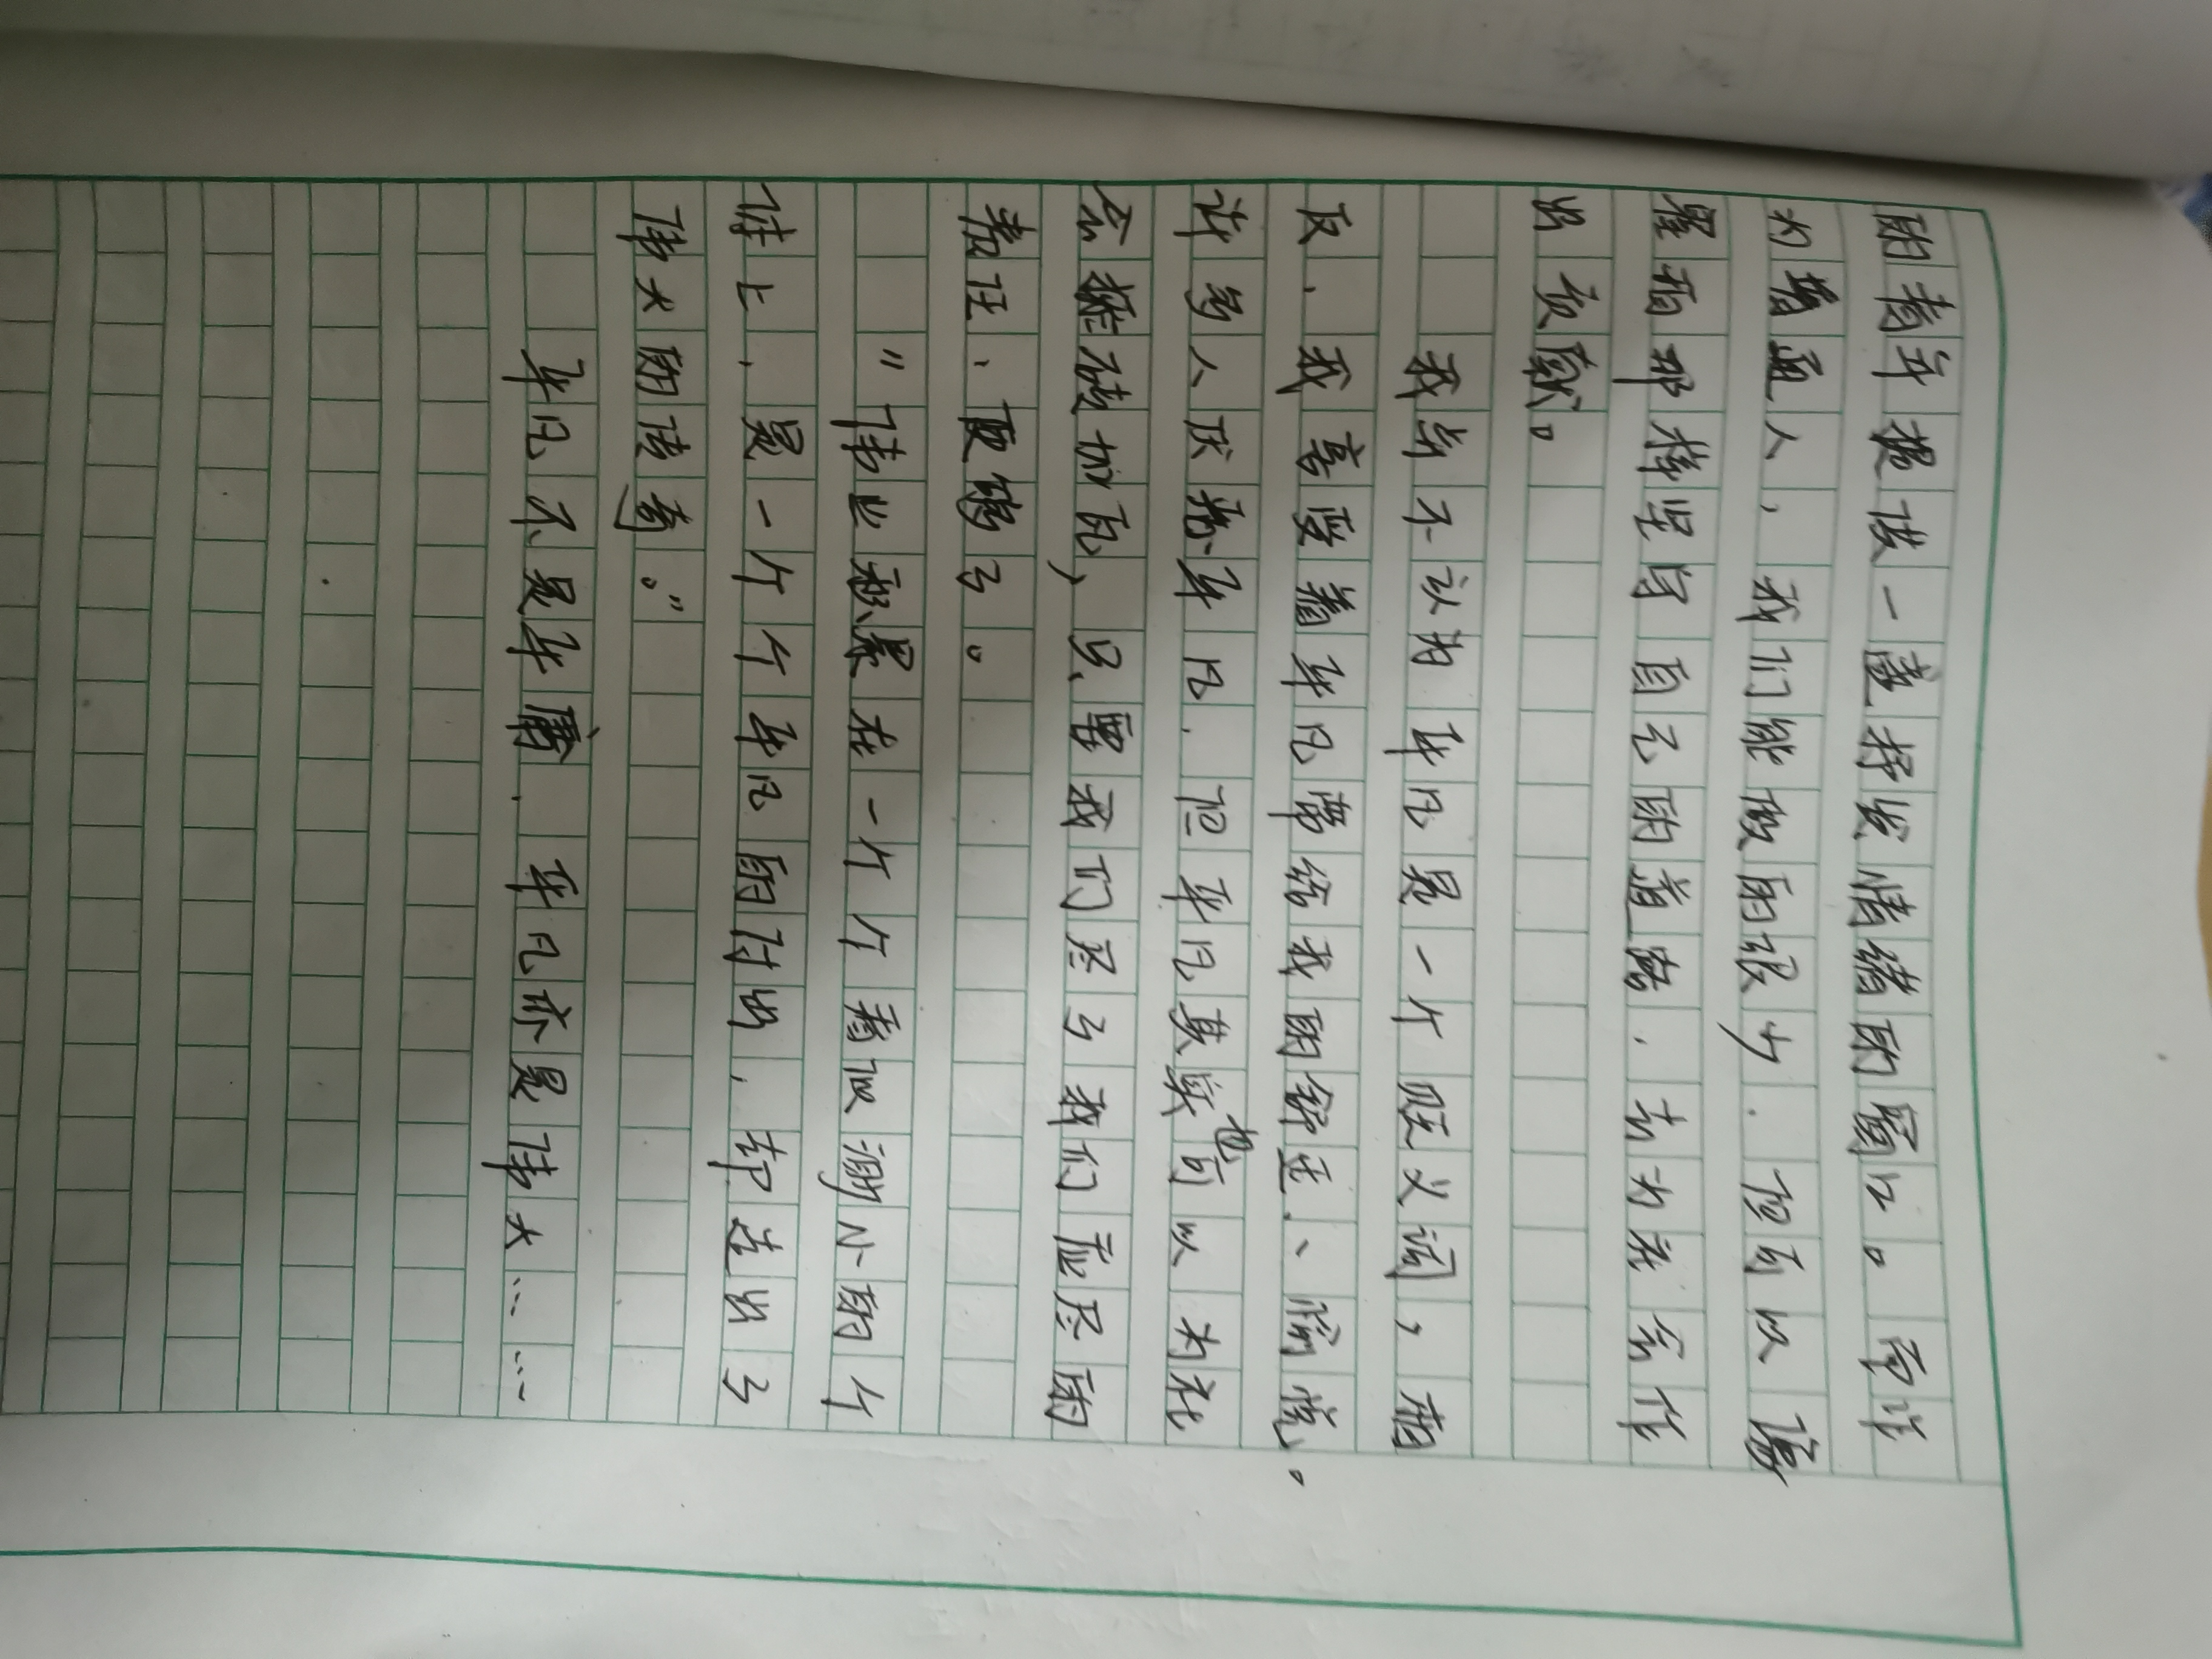 的青年提供一些抒发情绪的窗口。当许
为普通人，我们能做的很少．但可以像
星雨那样坚守自己的道路．去为社会作
出贡献。
我与不认为平凡是一个贬义词，相
反、我享受着平凡带给我的舒适、愉悦。
许多人厌恶平凡．但平凡其实也可以为社
会添砖加瓦，只要我们尽了我们应尽的
责任、更够了。
"伟业积累在一个个看似渺小的个
体上、是一个个平凡的付出，却造出了
伟大的传奇。"
平凡不是平庸．平凡亦是伟大……